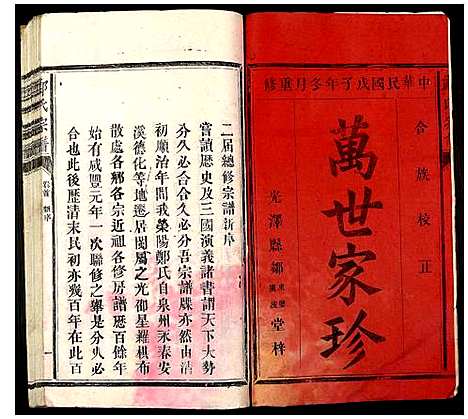 中華民國戊子年冬月重修
合族校正
萬世家珍
光澤縣鄒
堂梓
二届總修宗譜新序
嘗讀歷史及三國演義諸書謂天下大勢
分久必合合久必分吾宗譜牒亦然由清
初順治年間我滎陽鄭氏自泉州永春安
溪德化等地遷居閩屬之光邵星羅棋布
散處各鄉各宗近祖各修房譜歷百餘年
始有咸豐元年一次聯修之舉是分久必
合也此後歷清末民初亦幾百年在此百
氏宗譜
卷首
新序
一